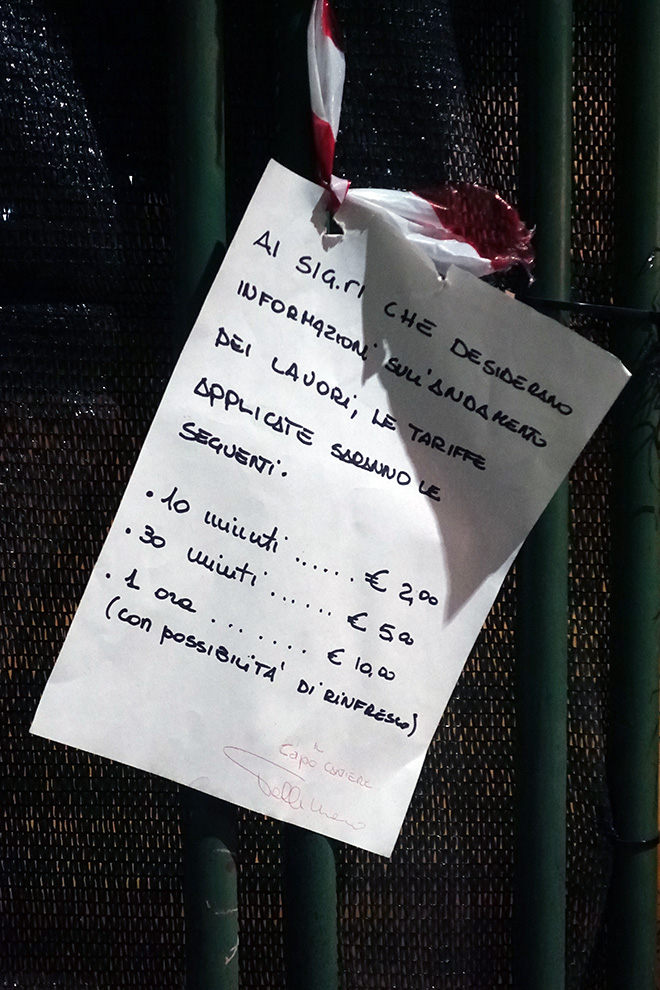 AI SIG.ri CHE DESIDERANO
INFORMAZIONI SULL'ANDAMENTO
DEI LAVORI, LE TARIFFE
APPLICATE SARANNO LE
SEGUENTI.
• 10 minuti ...... € 2,00
• 30 minuti ....... € 5,00
• 1 ora ........ € 10,00
(con POSSIBILITA' DI RINFRESCO)
IL
CAPO CANTIERE